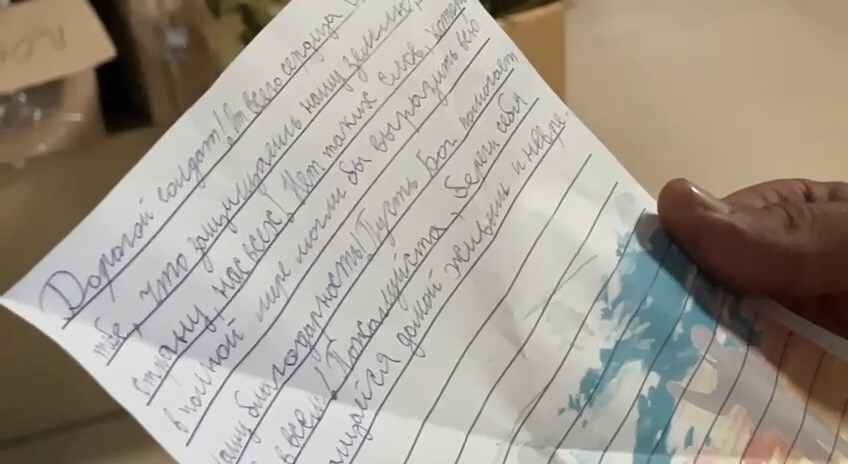 Дорогой солдат! От всего сердца
тебе, что защищаешь нашу землю,
страну, нас всех! Нет таких слов, которые
в полной мере могли бы выразить всю
нашу благодарность! Пусть Бог помогает
в всем! Пожалуйста, береги себя
домой живым и невре-